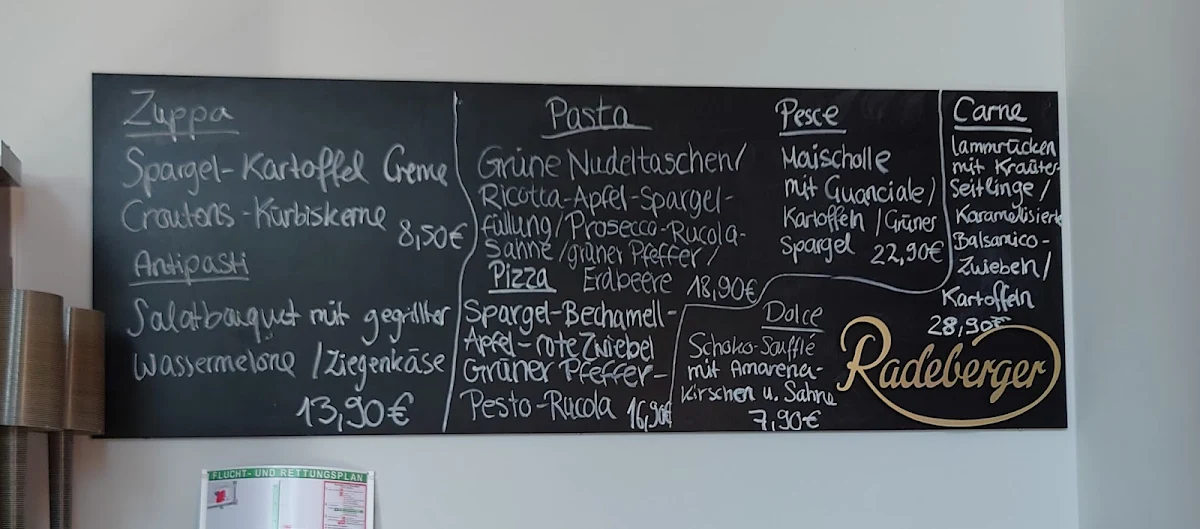 Zuppa
Spargel-Kartoffel Creme
Croutons-Kürbiskerne
8,50€
Antipasti
Salatbouquet mit gegrillter
Wassermelone / Ziegenkäse
13,90€
Pasta
Grüne Nudeltaschen/
Ricotta-Apfel-Spargel-
füllung/Prosecco-Rucola-
Sahne/grüner Pfeffer/
Erdbeere 18,90€
Pizza
Spargel-Bechamell-
Apfel-rote Zwiebel
Grüner Pfeffer-
Pesto-Rucola 16,90€
Pesce
Maischolle
mit Guanciale/
Kartoffeln/Grüner
Spargel 22,90€
Dolce
Schoko-Soufflé
mit Amarena-
Kirschen u. Sahne
7,90€
Carne
Lammrücken
mit Kräuter-
Seitlinge/
Karamelisierte
Balsamico-
Zwiebeln/
Kartoffeln
28,90€
Radeberger
FLUCHT- UND RETTUNGSPLAN